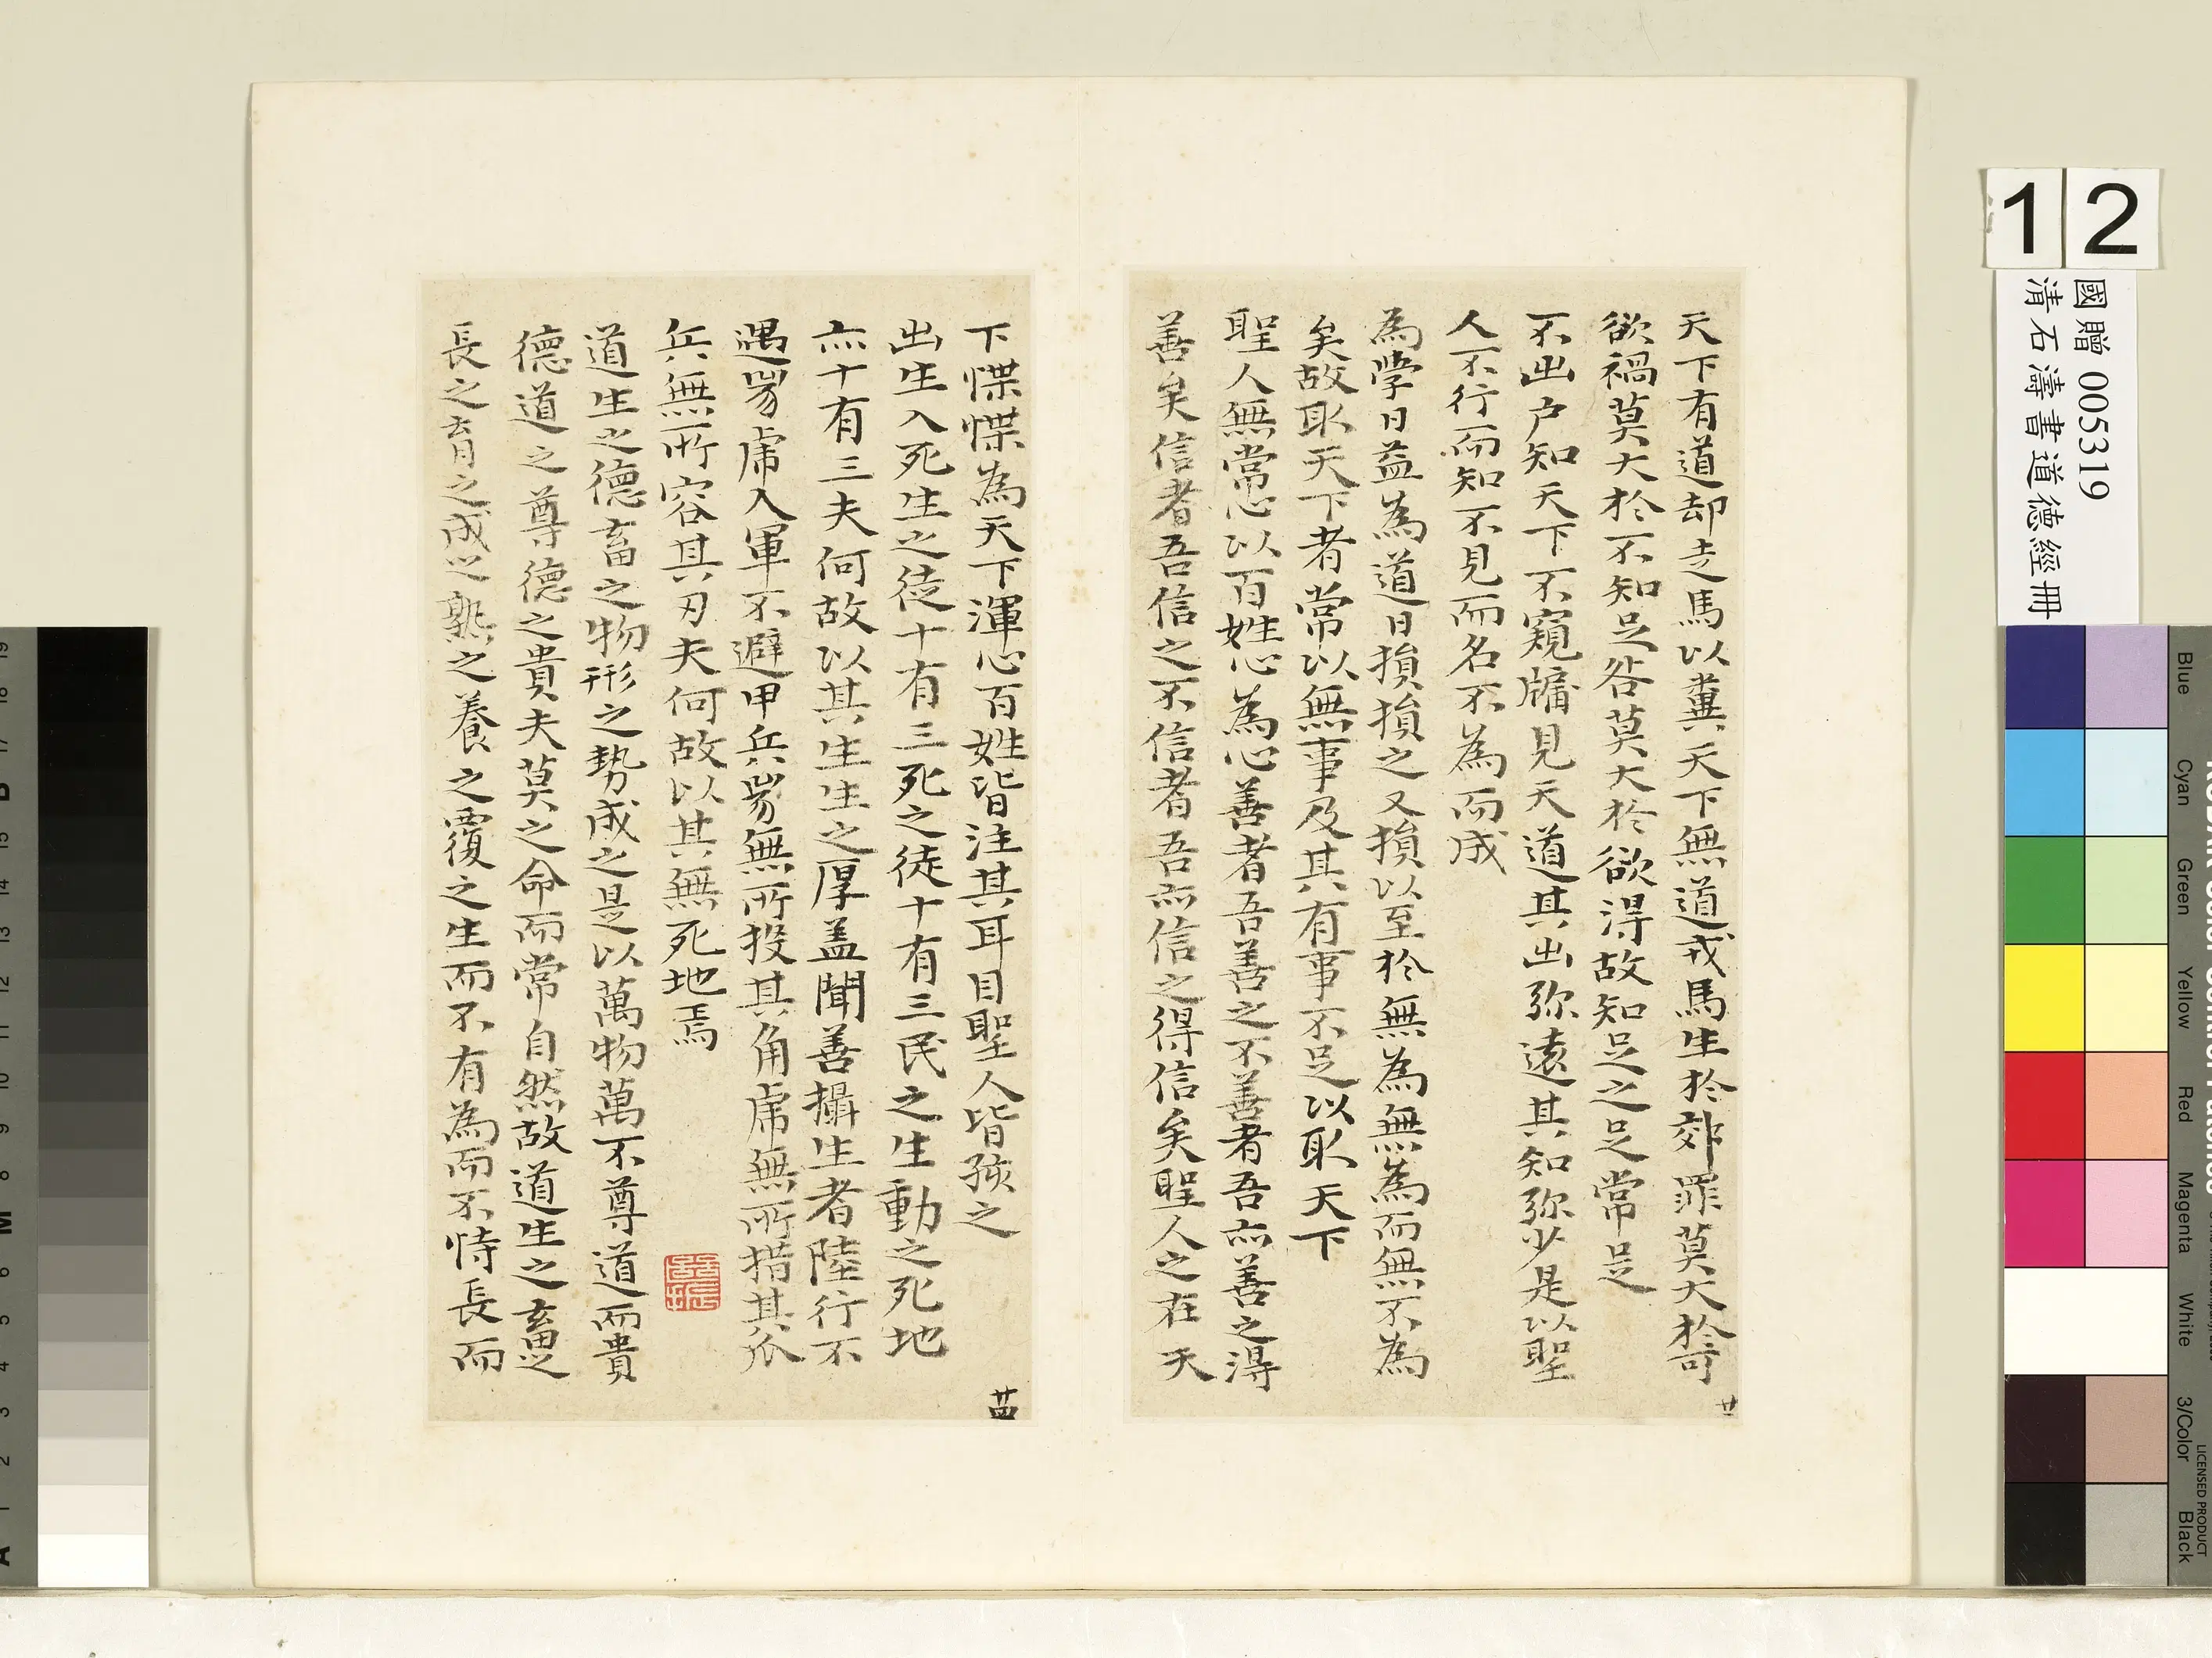 天下有道却走馬以糞天下無道戎馬生於郊罪莫大於可
欲禍莫大於不知足咎莫大於欲得故知足之足常足
不出户知天下不窺牖見天道其出弥遠其知弥少是以聖
人不行而知不見而名不為而成
為學日益為道日損損之又損以至於無為無為而無不為
矣故取天下者常以無事及其有事不足以取天下
聖人無常心以百姓心為心善者吾善之不善者吾亦善之得
善矣信者吾信之不信者吾亦信之得信矣聖人之在天
廿
下惵惵為天下渾心百姓皆注其耳目聖人皆孩之
出生入死生之徒十有三死之徒十有三民之生動之死地
亦十有三夫何故以其生生之厚盖聞善攝生者陸行不
遇兕虎入軍不避甲兵兕無所投其角虎無所措其爪
兵無所容其刃夫何故以其無死地焉
道生之德畜之物形之勢成之是以萬物萬不尊道而貴
德道之尊德之貴夫莫之命而常自然故道生之畜之
長之育之成之熟之養之覆之生而不有為而不恃長而
廿四
12
國贈 005319
清石濤書道德經冊
Blue
Cyan
Green
Yellow
Red
Magenta
White
3/Color
Black
LICENSED PRODUCT
19
18
17
B
15
14
13
12
11
10
9
8
M
6
5
4
3
2
1
A